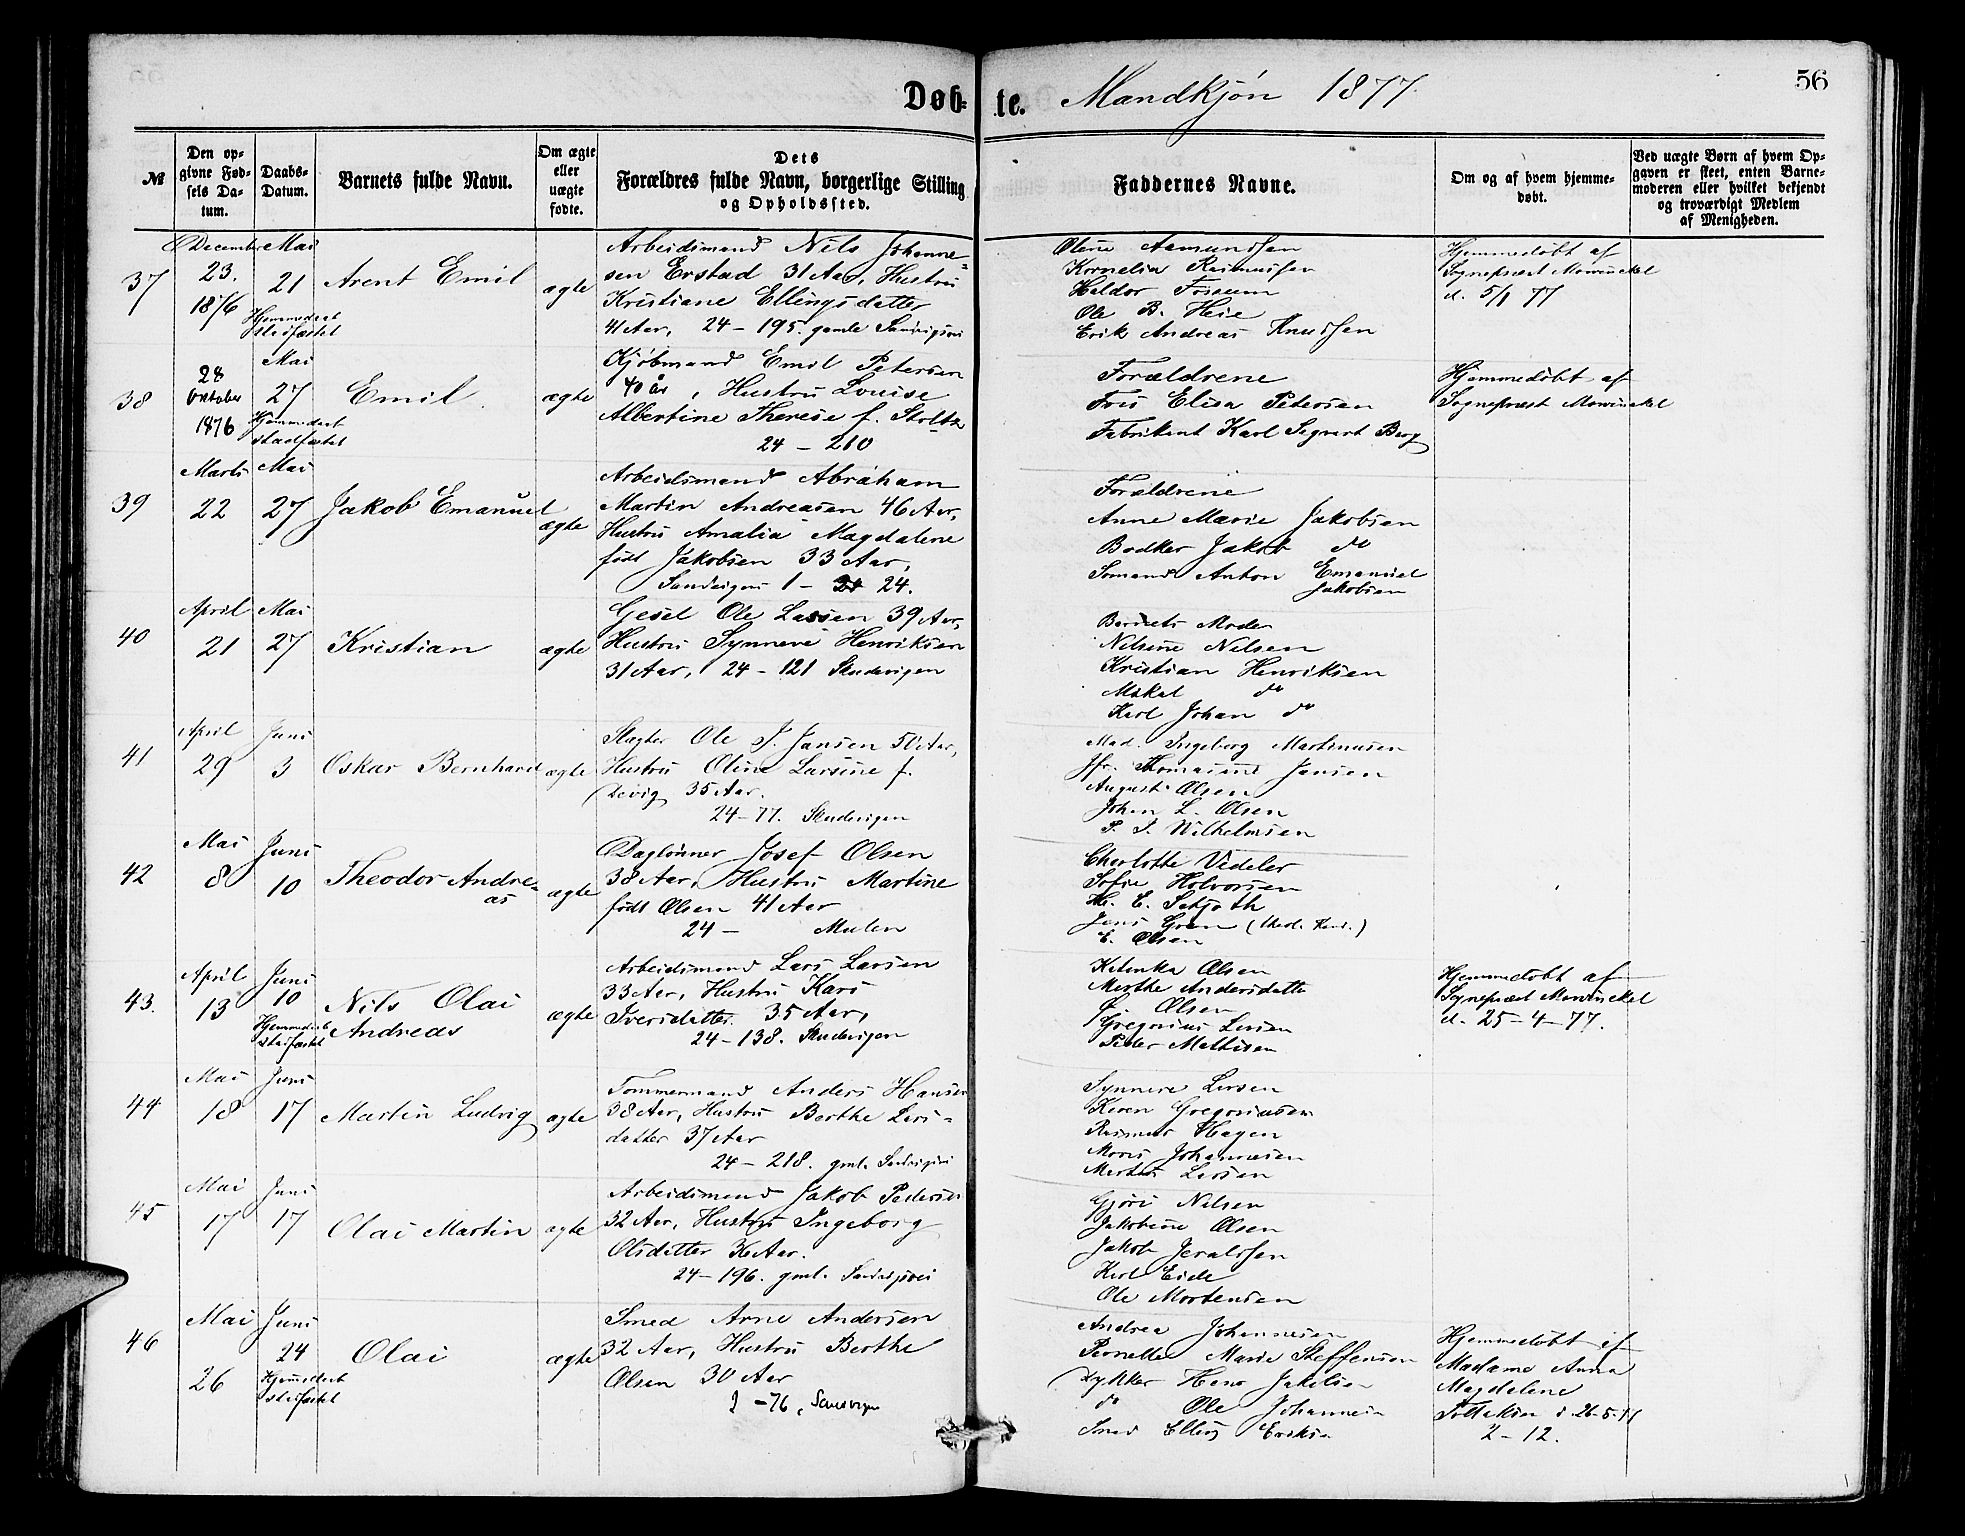 Døb- te. Mandkjøn 1877.
56
№
Den op-
givne Fød-
sels Da-
tum.
Daabs-
Datum.
Barnets fulde Navn.
Om ægte
eller
uægte
fødte.
Dets
Forældres fulde Navn, borgerlige Stilling
og Opholdssted.
Faddernes Navne.
Om og af hvem hjemme-
døbt.
Ved uægte Børn af hvem Op-
gaven er skeet, enten Barne-
moderen eller hvilket bekjendt
og troværdigt Medlem
af Menigheden.
37
December
23.
1876
Mai
21
Hjemmedaab
stadfæstet
Arent Emil
ægte
Arbeidsmand Nils Johanne-
sen Erstad 31 Aar, Hustru
Kristiane Ellingsdatter
41 Aar, 24 - 195. gamle Sandvigsvei
Oline Aamundsen
Kornelia Rasmussen
Haldor Fossum
Ole B. Heie
Erik Andreas Knudsen
Hjemmedøbt af
Sognepræst Mowinckel
d. 5/1 77
38
28
Oktober
1876
Mai
27
Hjemmedaab
stadfæstet
Emil
ægte
Kjøbmand Emil Petersen
40 år, Hustru Louise
Albertine Therese f. Stoltz
24 - 210
Forældrene
Frøs Elisa Petersen
Fabrikant Karl Segvert Berg
Hjemmedøbt af
Sognepræst Mowinckel
39
Marts
22
Mai
27
Jakob Emanuel
ægte
Arbeidsmand Abraham
Martin Andreasen 46 Aar,
Hustru Amalia Magdalene
født Jakobsen 33 Aar,
Sandvigen 1 - 24.
Forældrene
Anne Marie Jakobsen
Bødker Jakob do
Sømand Anton Emanuel
Jakobsen
40
April
21
Mai
27
Kristian
ægte
Gesel Ole Larsen 39 Aar,
Hustru Synneve Henriksen
31 Aar, 24 - 121 Skudevigen
Barnets Moder
Nilsine Nilsen
Kristian Henriksen
Mikal do
Karl Johan do
41
April
29
Juni
3
Oskar Bernhard
ægte
Slagter Ole J. Jansen 50 Aar,
Hustru Oline Larsine f.
Devig 35 Aar.
24-77. Skudevigen
Mad. Ingeborg Martinusen
Jfr. Thomasine Jansen
August Olsen
Johan L. Olsen
P. J. Wilhelmsen
42
Mai
8
Juni
10
Theodor Andre-
as
ægte
Daglønner Josef Olsen
38 Aar, Hustru Martine
født Olsen 41 Aar
24 - Mulen
Charlotte Videler
Sofie Halvorsen
H. E. Schjøth
Jens Gran (theol. Kand.)
E. Olsen
43.
April
13
Juni
10
Hjemmedaab
stadfæstet
Nils Olai
Andreas
ægte
Arbeidsmand Lars Larsen
33 Aar, Hustru Kari
Iversdatter 35 Aar,
24-138. Skudevigen
Katinka Olsen
Marthe Andersdatter
Olsen
Gregorius Larsen
Peder Mathisen
Hjemmedøbt af
Sognepræst Mowinckel
d. 25-4-77.
44
Mai
18
Juni
17
Martin Ludvig
ægte
Tømmermand Anders Hansen
38 Aar, Hustru Berthe Lars-
datter 37 Aar
24 - 218. gml. Sandvigsvei
Synneve Larsen
Karen Gregoriussen
Rasmus Hagen
Mons Johannesen
Larsen
45
Mai
17
Juni
17
Olai Martin
ægte
Arbeidsmand Jakob Pedersen
32 Aar, Hustru Ingeborg
Olsdatter Aar.
24-196. gml. Sandvigsvei
Gjøri Nilsen
Jakobine Olsen
Jakob
Karl Eide
Ole Mortensen
46
Mai
26
Juni
24
Hjemmedaab
stadfæstet
Olai
ægte
Smed Arne Andersen
32 Aar, Hustru Berthe
Olsen 30 Aar
2 - 76, Sandvigen
Andrea Johannesen
Pernelle Marie Steffensen
Dykker Hans Jakobsen
do Ole Johannesen
Smed Elling Eriksen
Hjemmedøbt af
Madame Anna
Magdalene
d. 26-5-77
2-12.